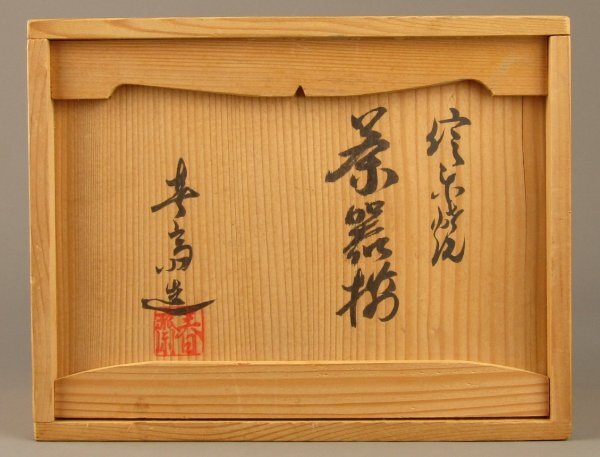 信楽焼
茶器揃
春斎造